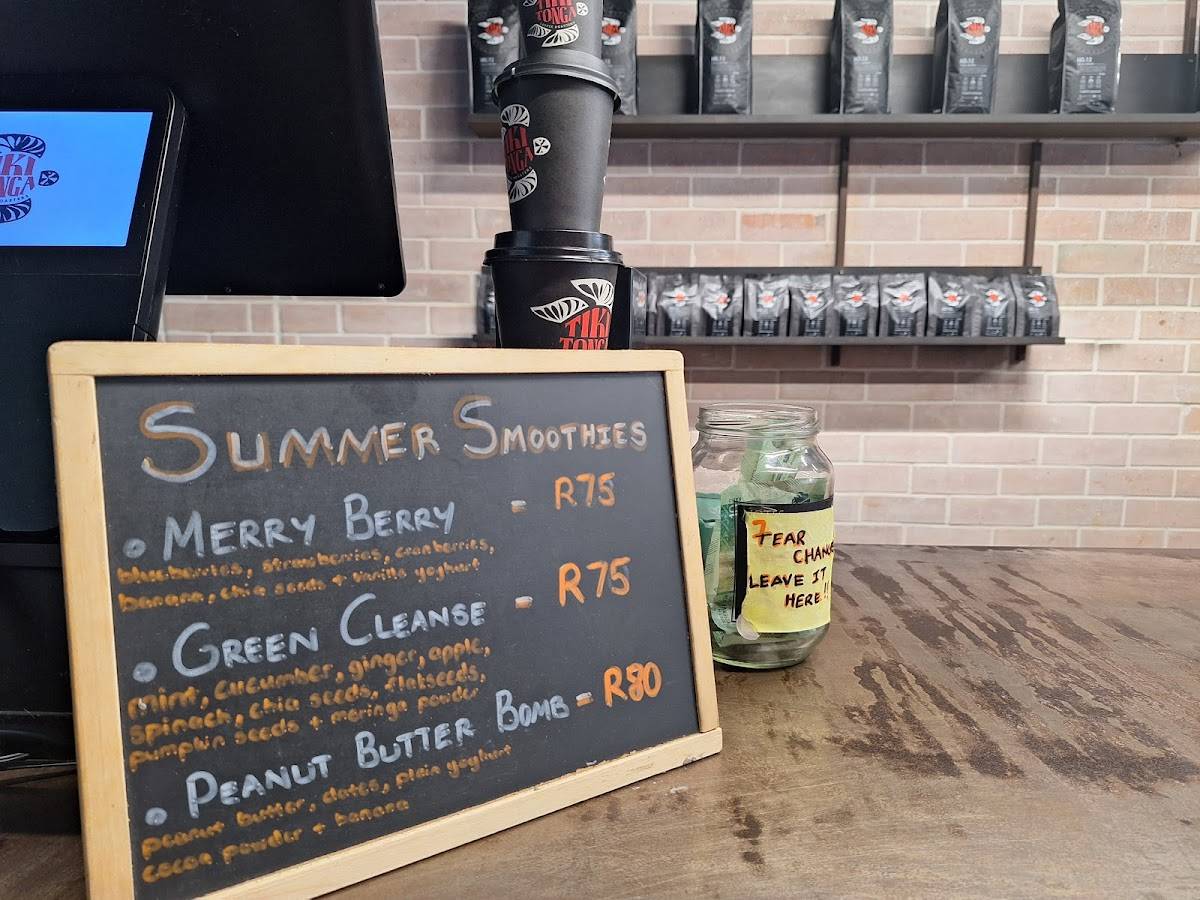 TIKI
TONGA
TIKI
TONGA
TIKI
TONGA
SUMMER SMOOTHIES
• MERRY BERRY - R75
blueberries, strawberries, cranberries,
banana, chia seeds + vanilla yoghurt
• GREEN CLEANSE - R75
mint, cucumber, ginger, apple,
spinach, chia seeds, flatseeds,
pumpkin seeds + moringa powder
• PEANUT BUTTER BOMB = R80
peanut butter, dates, plain yoghurt
cocoa powder + banana
7EAR
CHANGE
LEAVE IT
HERE!!